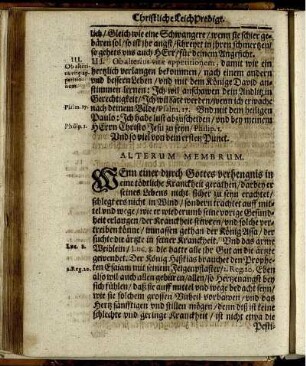 Christliche LeichPredigt.
lich / Gleich wie eine Schwangere / wenn sie schier gebä-
ren sol / so ist jhr angst / schreyet in jhren schmertzen /
so gehets uns auch HErr / für deinem Angesicht.
III.
III. Ob alterius vitæ appetitionem: damit wir ein
hertzlich verlangen bekommen / nach einem andern
und bessern Leben / und mit dem König David an-
stimmen lernen: Ich wil anschawen dein Antlitz in
Gerechtigkeit / Ich wil sat werden / wenn ich erwache
Psalm. 17.
nach deinem Bilde / Psalm. 17. Und mit dem heiligen
Paulo: Ich habe lust abzuscheiden / und bey meinem
Philip. 1.
HErrn Christo Jesu zu seyn / Philip. 1.
Und so viel von dem ersten Punct.
ALTERUM MEMBRUM.
WEnn einer durch Gottes verhengnis in
eine tödtliche Kranckheit gerathen / darbey er
seines Lebens nicht sicher zu seyn erachtet /
schlegt ers nicht in Wind / sondern trachtet auff mit-
tel und wege / wie er wiederumb seine vorige Gesund-
heit erlangen / der Kranckheit stewren / und solche ver-
treiben könne / immassen gethan der König Assa / der
suchte die ärtzte in seiner Kranckheit. Und das arme
Luc. 8.
Weiblein / Luc. 8. die hatte alle jhr Gut an die ärtzte
gewendet. Der König Hiskias brauchet den Prophe-
2. Reg. 20.
ten Esaiam mit seinem Feigenpflaster / 2. Reg. 20. Eben
also wil auch allen gebüren / allen / so Hertzenangst bey
sich fühlen / daß sie auff mittel und wege bedacht seyn /
wie sie solchem grossen Unheil vorbawen / und das
Hertz sänfftigen und stillen mögen / denn diß ist keine
schlechte und geringe Kranckheit / ist nicht etwa die
Pesti-